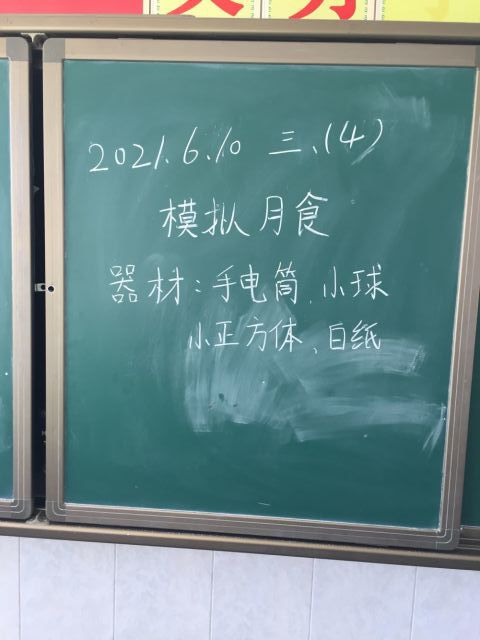 2021.6.10 三、(4)
模拟月食
器材：手电筒、小球
小正方体、白纸